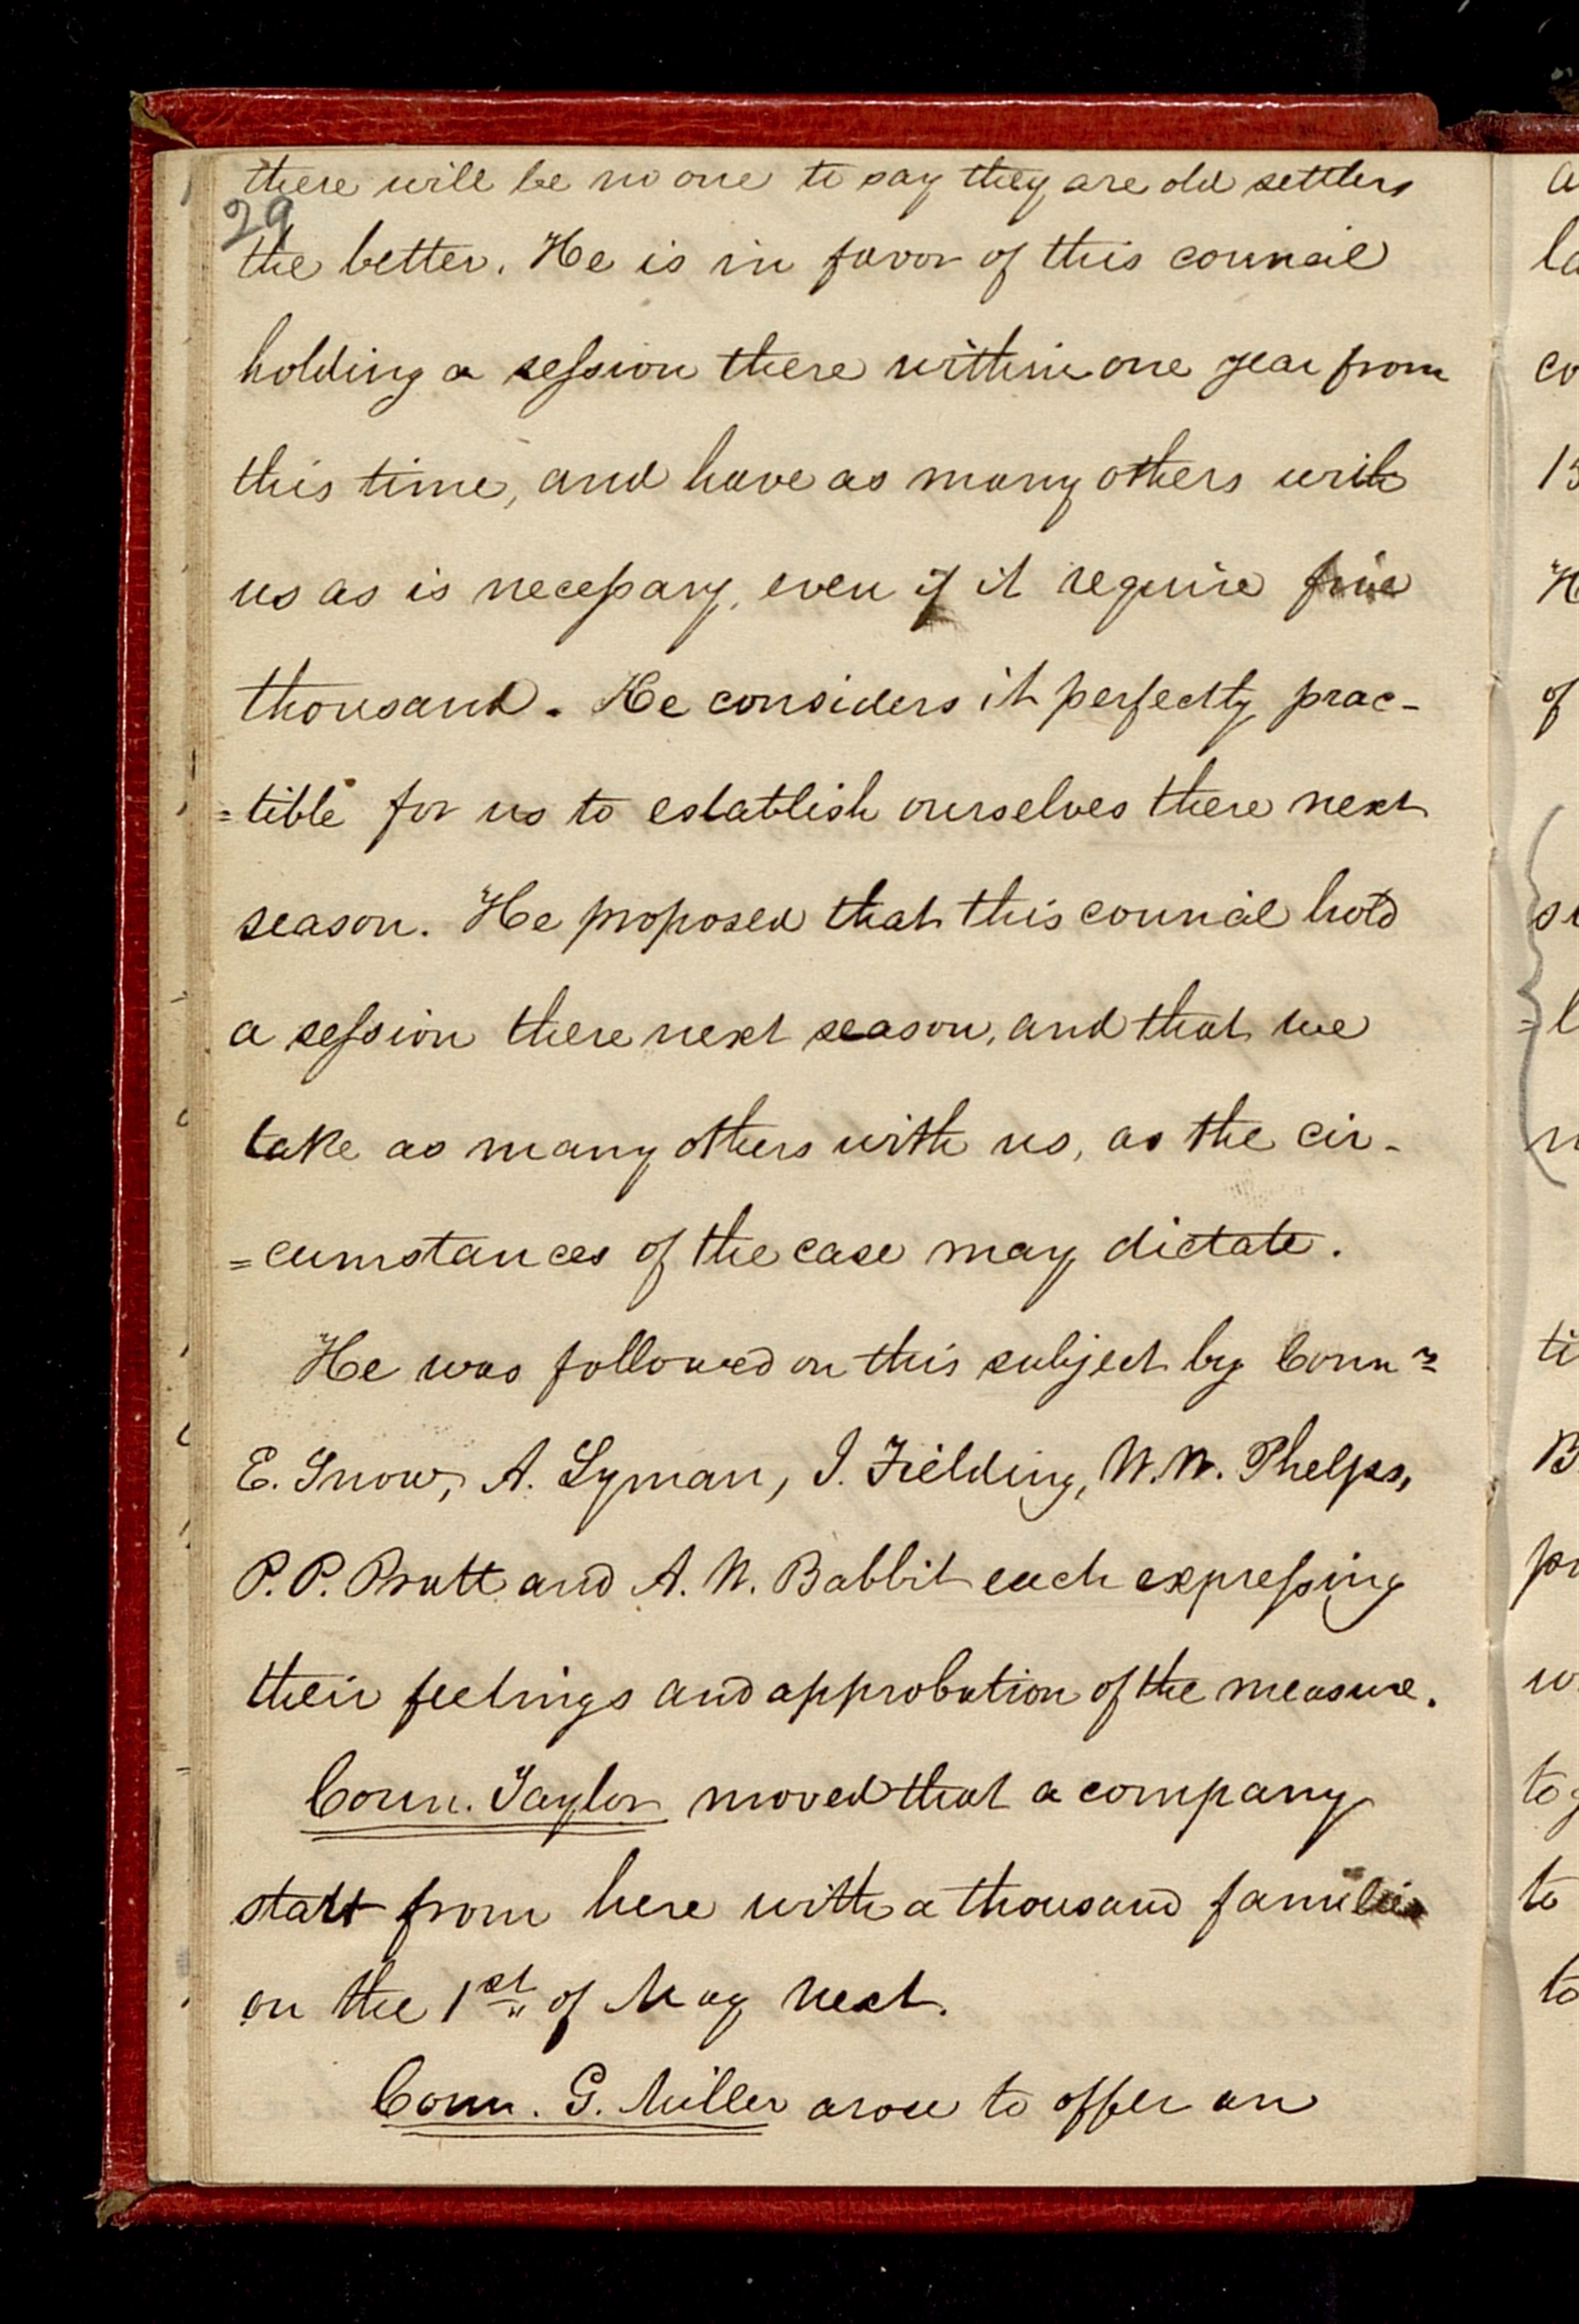 there will be no one to say they are old settlers
29
the better. He is in favor of this council
holding a session there within one year from
this time, and have as many others with
us as is necessary, even if it require five
thousand. He considers it perfectly prac-
=tible for us to establish ourselves there next
season. He proposed that this council hold
a session there next season, and that we
take as many others with us, as the cir-
=cumstances of the case may dictate.
He was followed on this subject by Counrs
E. Snow, A. Lyman, J. Fielding, W. W. Phelps,
P. P. Pratt and A. W. Babbit each expressing
their feelings and approbation of the measure.
Coun. Taylor moved that a company
start from here with a thousand families
on the 1st of May next.
Coun. G. Miller arose to offer an